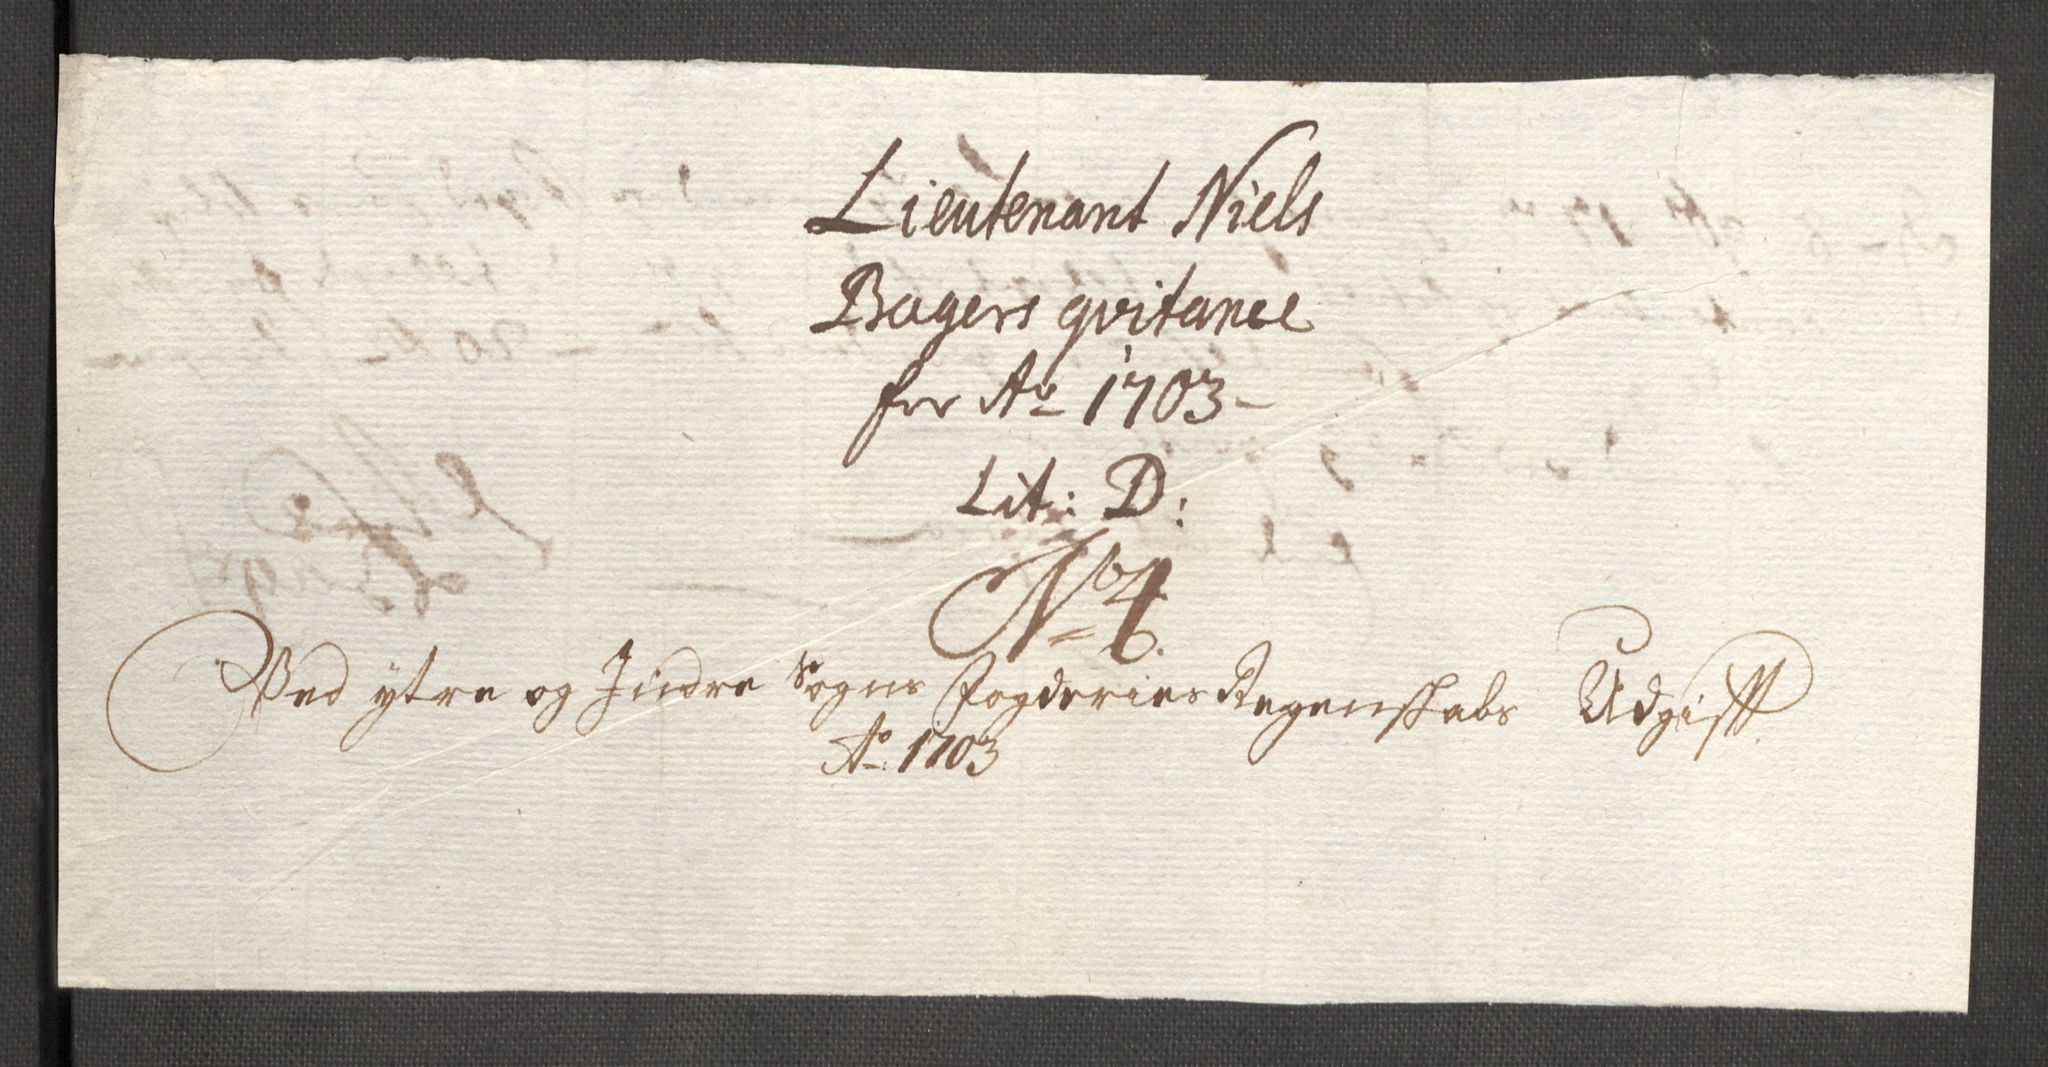 Lieutenant Niels
Bagers qvitance
for Ao 1703-
Lit: D:
No 4.
Ved ytre og Indre Sogns fogderies Regenskabs Udgift
Ao: 1703